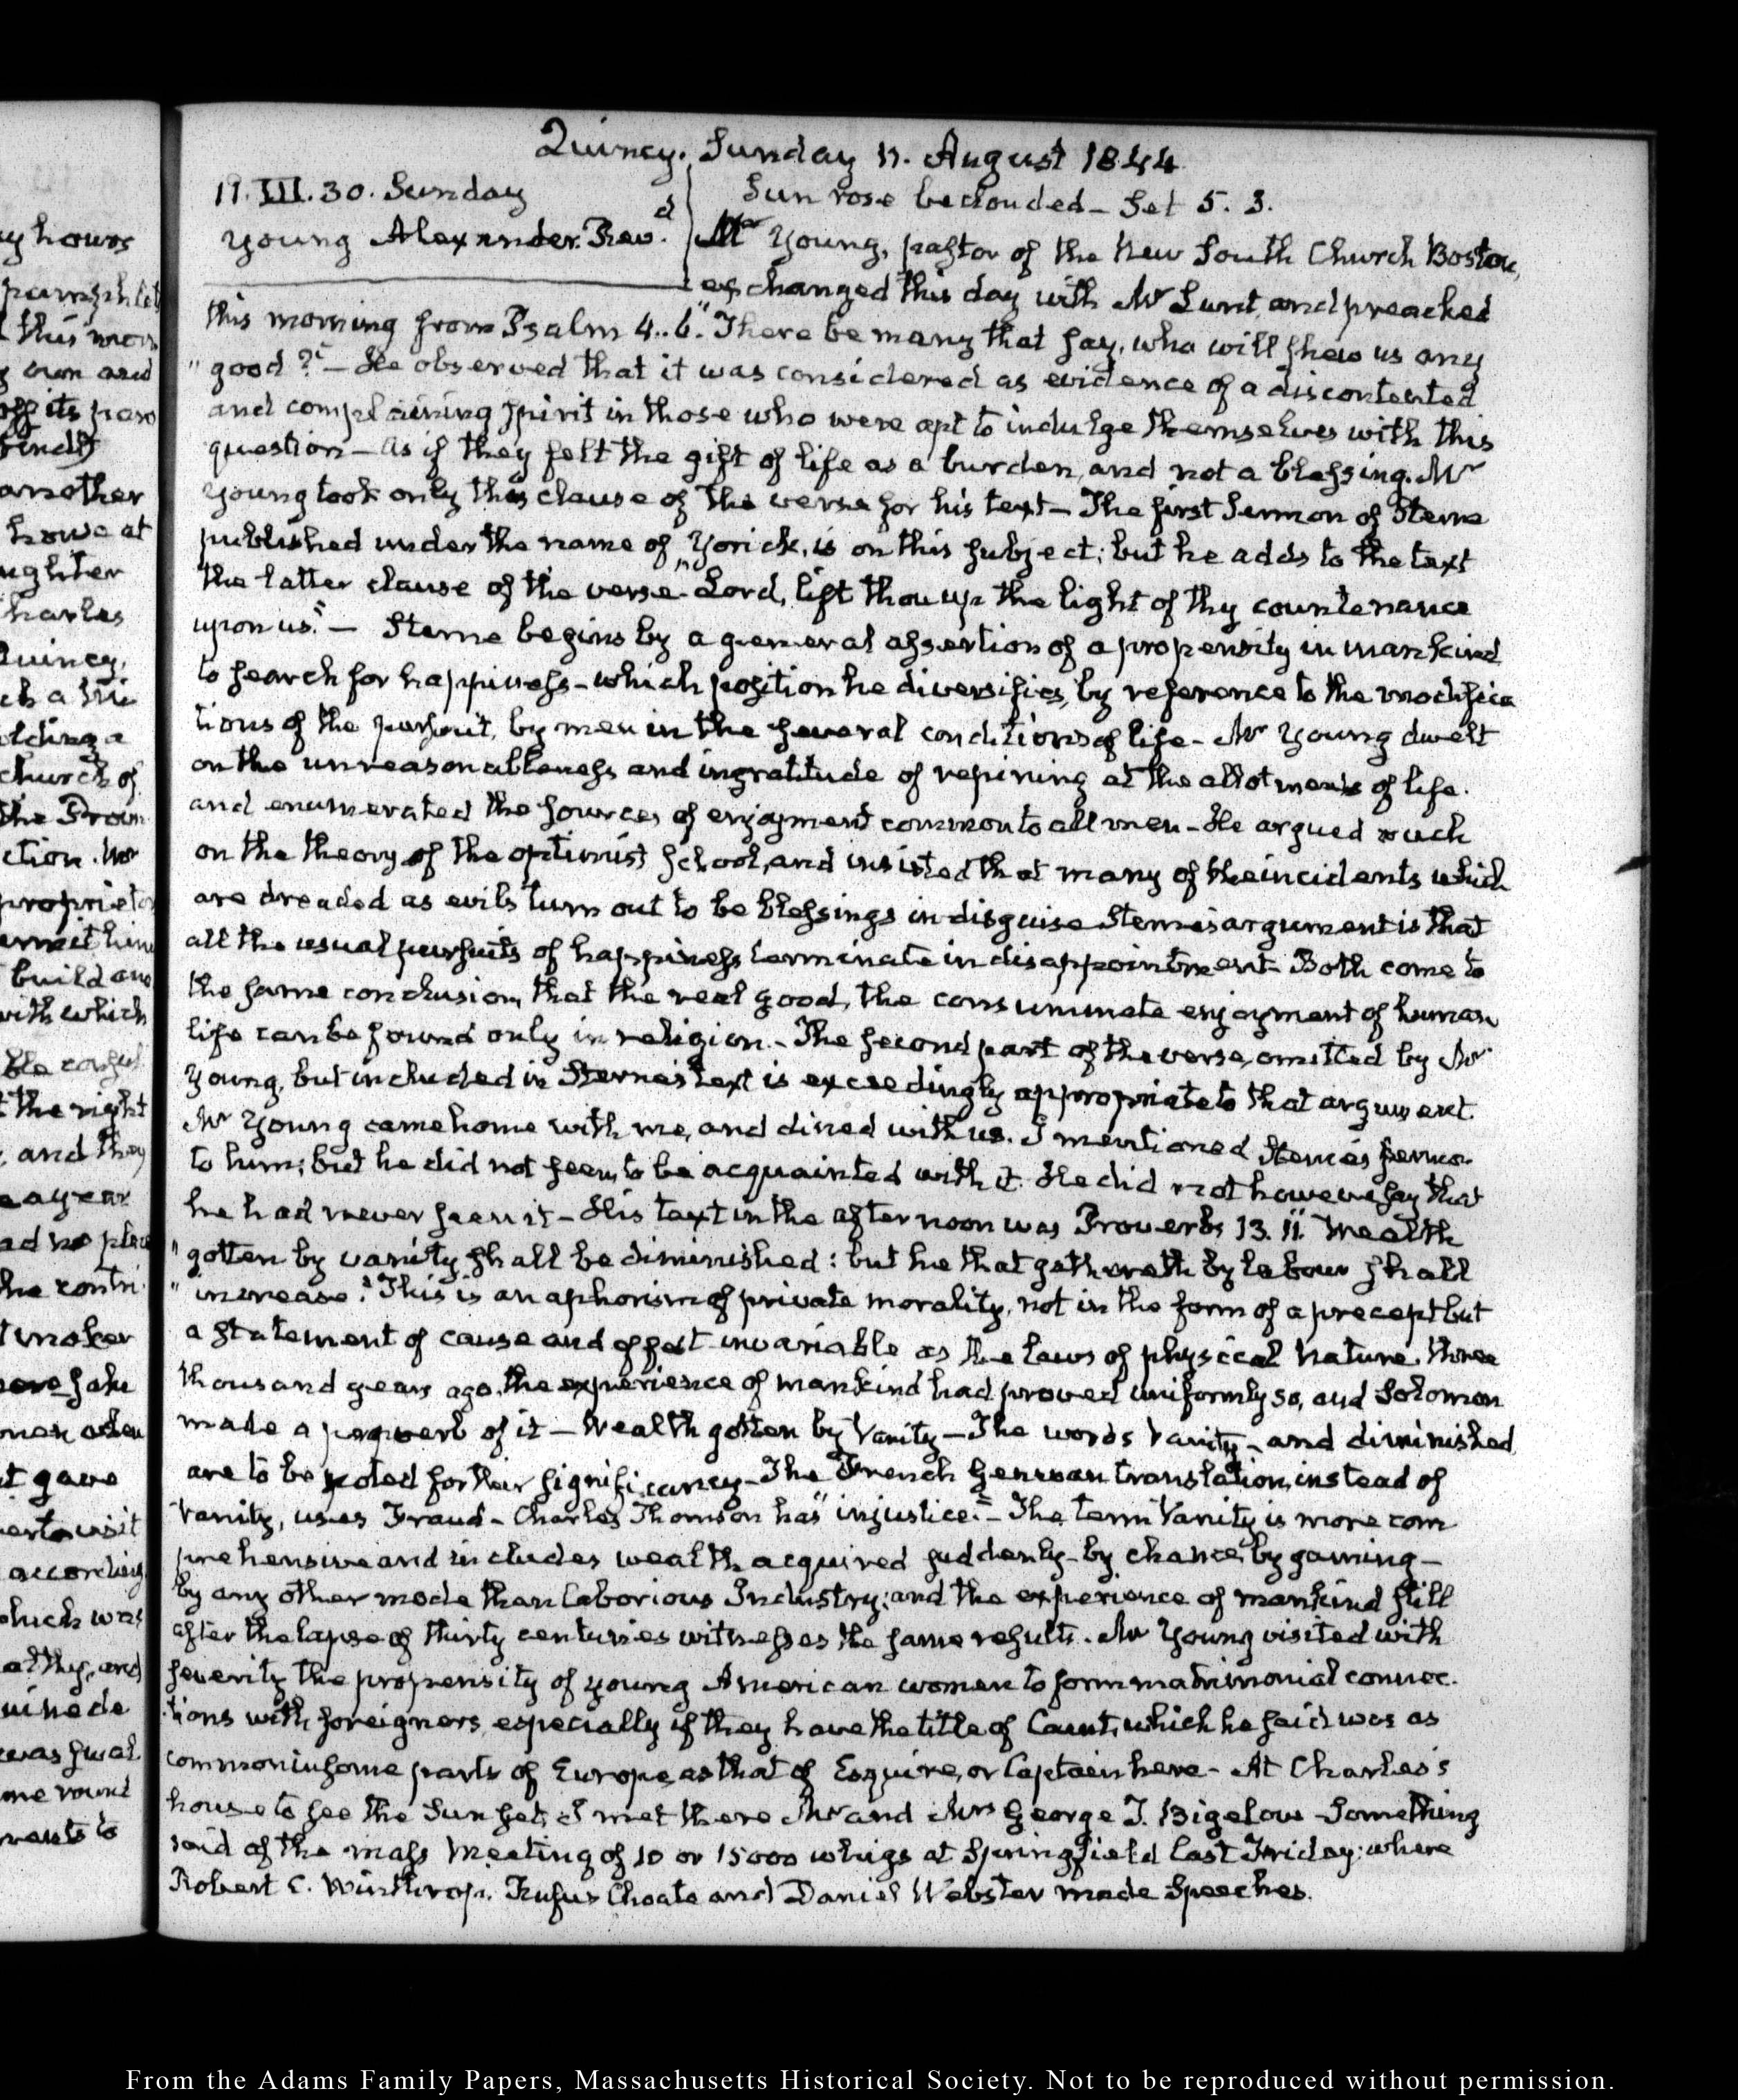 Quincy. Sunday 11. August 1844
11. III. 30. Sunday
Young Alexander. Revd.
Sun rose beclouded – Set 5. 3.
Mr Young, pastor of the New South Church Boston,
exchanged this day with Mr Lunt, and preached
this morning from Psalm 4..6. "There be many that say, who will shew us any
" good?" – He observed that it was considered as evidence of a discontented
and complaining spirit in those who were apt to indulge themselves with this
question – as if they felt the gift of life as a burden, and not a blessing. Mr
Young took only this clause of the verse for his text – The first Sermon of Sterne
published under the name of Yorick, is on this subject; but he adds to the text
the latter clause of the verse "Lord, lift thou up the light of thy countenance
upon us." – Sterne begins by a general assertion of a propensity in mankind
to search for happiness – which position he diversifies, by reference to the modifica
tions of the pursuit, by men in the several conditions of life – Mr Young dwelt
on the unreasonableness and ingratitude of repining at the allotments of life.
and enumerated the sources of enjoyment common to all men – He argued much
on the theory of the optimist school, and insisted that many of the incidents which
are dreaded as evils turn out to be blessings in disguise Sterne's argument is that
all the usual pursuits of happiness terminate in disappointment – Both come to
the same conclusion, that the real good, the consummate enjoyment of human
life can be found only in religion. – The second part of the verse, omitted by Mr
Young, but included in Sterne's text is exceedingly appropriate to that argument.
Mr Young came home with me, and dined with us. I mentioned Sterne's sermon
to him; but he did not seem to be acquainted with it. He did not however say that
he had never seen it – His text in the afternoon was Proverbs 13. 11. "Wealth
" gotten by vanity shall be diminished: but he that gathereth by labour shall
" increase." This is an aphorism of private morality, not in the form of a precept but
a statement of cause and effect invariable as the laws of physical Nature. Three
thousand years ago, the experience of mankind had proved uniformly so, and Solomon
made a proverb of it – Wealth gotten by Vanity – The words Vanity – and diminished
are to be noted for their significancy – The French German translation, instead of
Vanity, uses Fraud – Charles Thomson has "injustice." – The term Vanity is more com
prehensive and includes wealth acquired suddenly – by chance, by gaming –
by any other mode than laborious Industry; and the experience of mankind still
after the lapse of thirty centuries witnesses the same results. Mr Young visited with
severity the propensity of young American women to form matrimonial connec.
tions with foreigners, especially if they have the title of Count, which he said was as
common in some parts of Europe as that of Esquire, or Captain here – At Charles's
house to see the Sun set, I met there Mr and Mrs George T. Bigelow – Something
said of the mass Meeting of 10 or 15000 whigs at Springfield last Friday: where
Robert C. Winthrop. Rufus Choate and Daniel Webster made Speeches.
From the Adams Family Papers, Massachusetts Historical Society. Not to be reproduced without permission.